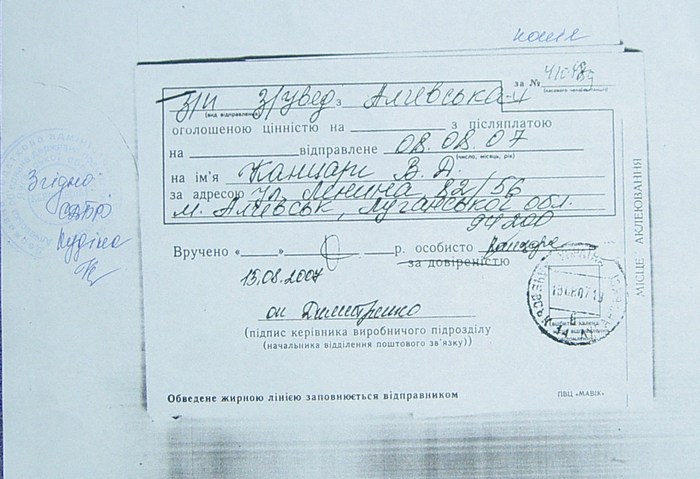 копия
З/П З/увед з Алчевська-4 за № 
(вид відправлення) (касового чека/квитанції)
оголошеною цінністю на з післяплатою
на відправлене 08.08.07
(число, місяць, рік)
на ім'я Канцари В. Д.
за адресою ул. Ленина 82/56
м. Алчевськ, Луганської обл.
94200
Вручено « » р. особисто
за довіреністю
15.08.2007
оп Дмитренко
(підпис керівника виробничого підрозділу
(начальника відділення поштового зв'язку))
Обведене жирною лінією заповнюється відправником
ПВЦ «МАВІК»
МІСЦЕ АКЛЕЮВАННЯ
Згідно